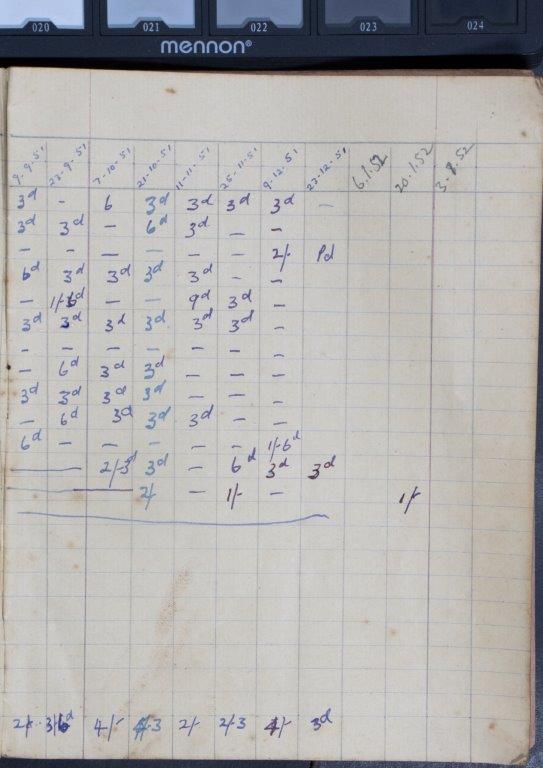 020 021 022 023 024
mennon®
9-9-51 23-9-51 7-10-51 21-10-51 11-11-51 25-11-51 9-12-51 23-12-51 6.1.52 20.1.52 3.2.52
3d - 6 3d 3d 3d 3d -
3d 3d - 6d 3d - -
- - - - - - 2/- Pd
6d 3d 3d 3d 3d - -
- 1/-6d - - 9d 3d -
3d 3d 3d 3d 3d 3d -
- - - - - - -
- 6d 3d 3d - - -
3d 3d 3d 3d - - -
- 6d 3d 3d 3d - -
6d - - - - - 1/-6d
— 2/-3d 3d - 6d 3d 3d
— 2/- - 1/- - 1/-
2/- 3/6d 4/- 4/3 2/- 2/3 4/- 3d